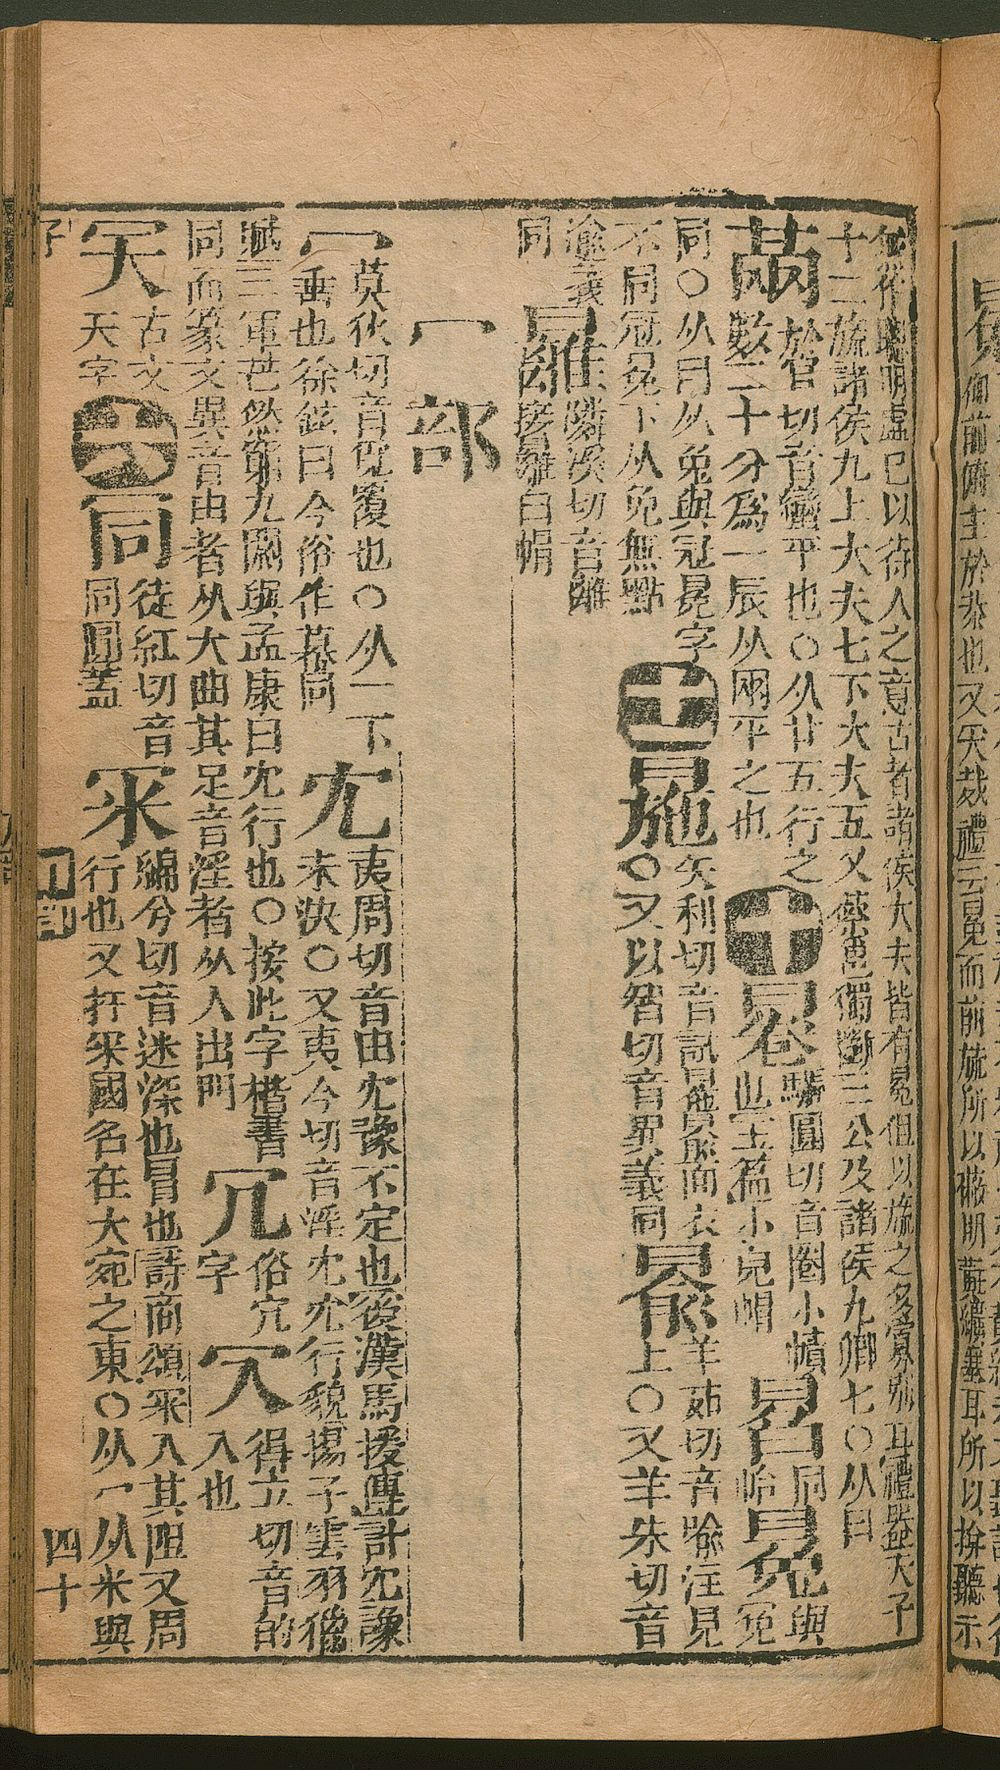 無從聰明虛己以待人之意古者諸侯大夫皆有冕但以旒之多寡別耳禮器天子
十二旒諸侯九上大夫七下大夫五又漢獨斷三公及諸侯九卿七〇从冃
㒼
於官切音蠻平也〇从廿五行之
數二十分爲一辰从兩平之也
十
驅圓切音圈小幘
也至篇小兒帽
同
與冕
同〇从冃从免與冠冕字
不同冠冕下从免無點
十一
矢利切音
面衣
〇又以智切音異義同
羊茹切音喻注見
上〇又羊朱切音
逾義
同
隣溪切音離
接䍦白帽
冖部
冖
莫狄切音覓覆也〇从一下
垂也徐鉉曰今俗作冪同
冘
夷周切音由冘豫不定也後漢馬援傳計冘豫
未決〇又夷今切音淫冘冘行貌揚子雲羽獵
賦三軍芒然窮九閼與孟康曰冘行也〇按此字楷書
同而篆文異音由者从大曲其足音淫者从人出門
冗
俗宂
字
得立切音的
入也
古文
天字
六
同
徒紅切音
同圓蓋
冞
綿兮切音迷深也冒也詩商頌冞入其阻又周
行也又扞冞國名在大宛之東〇从冖从米與
四十